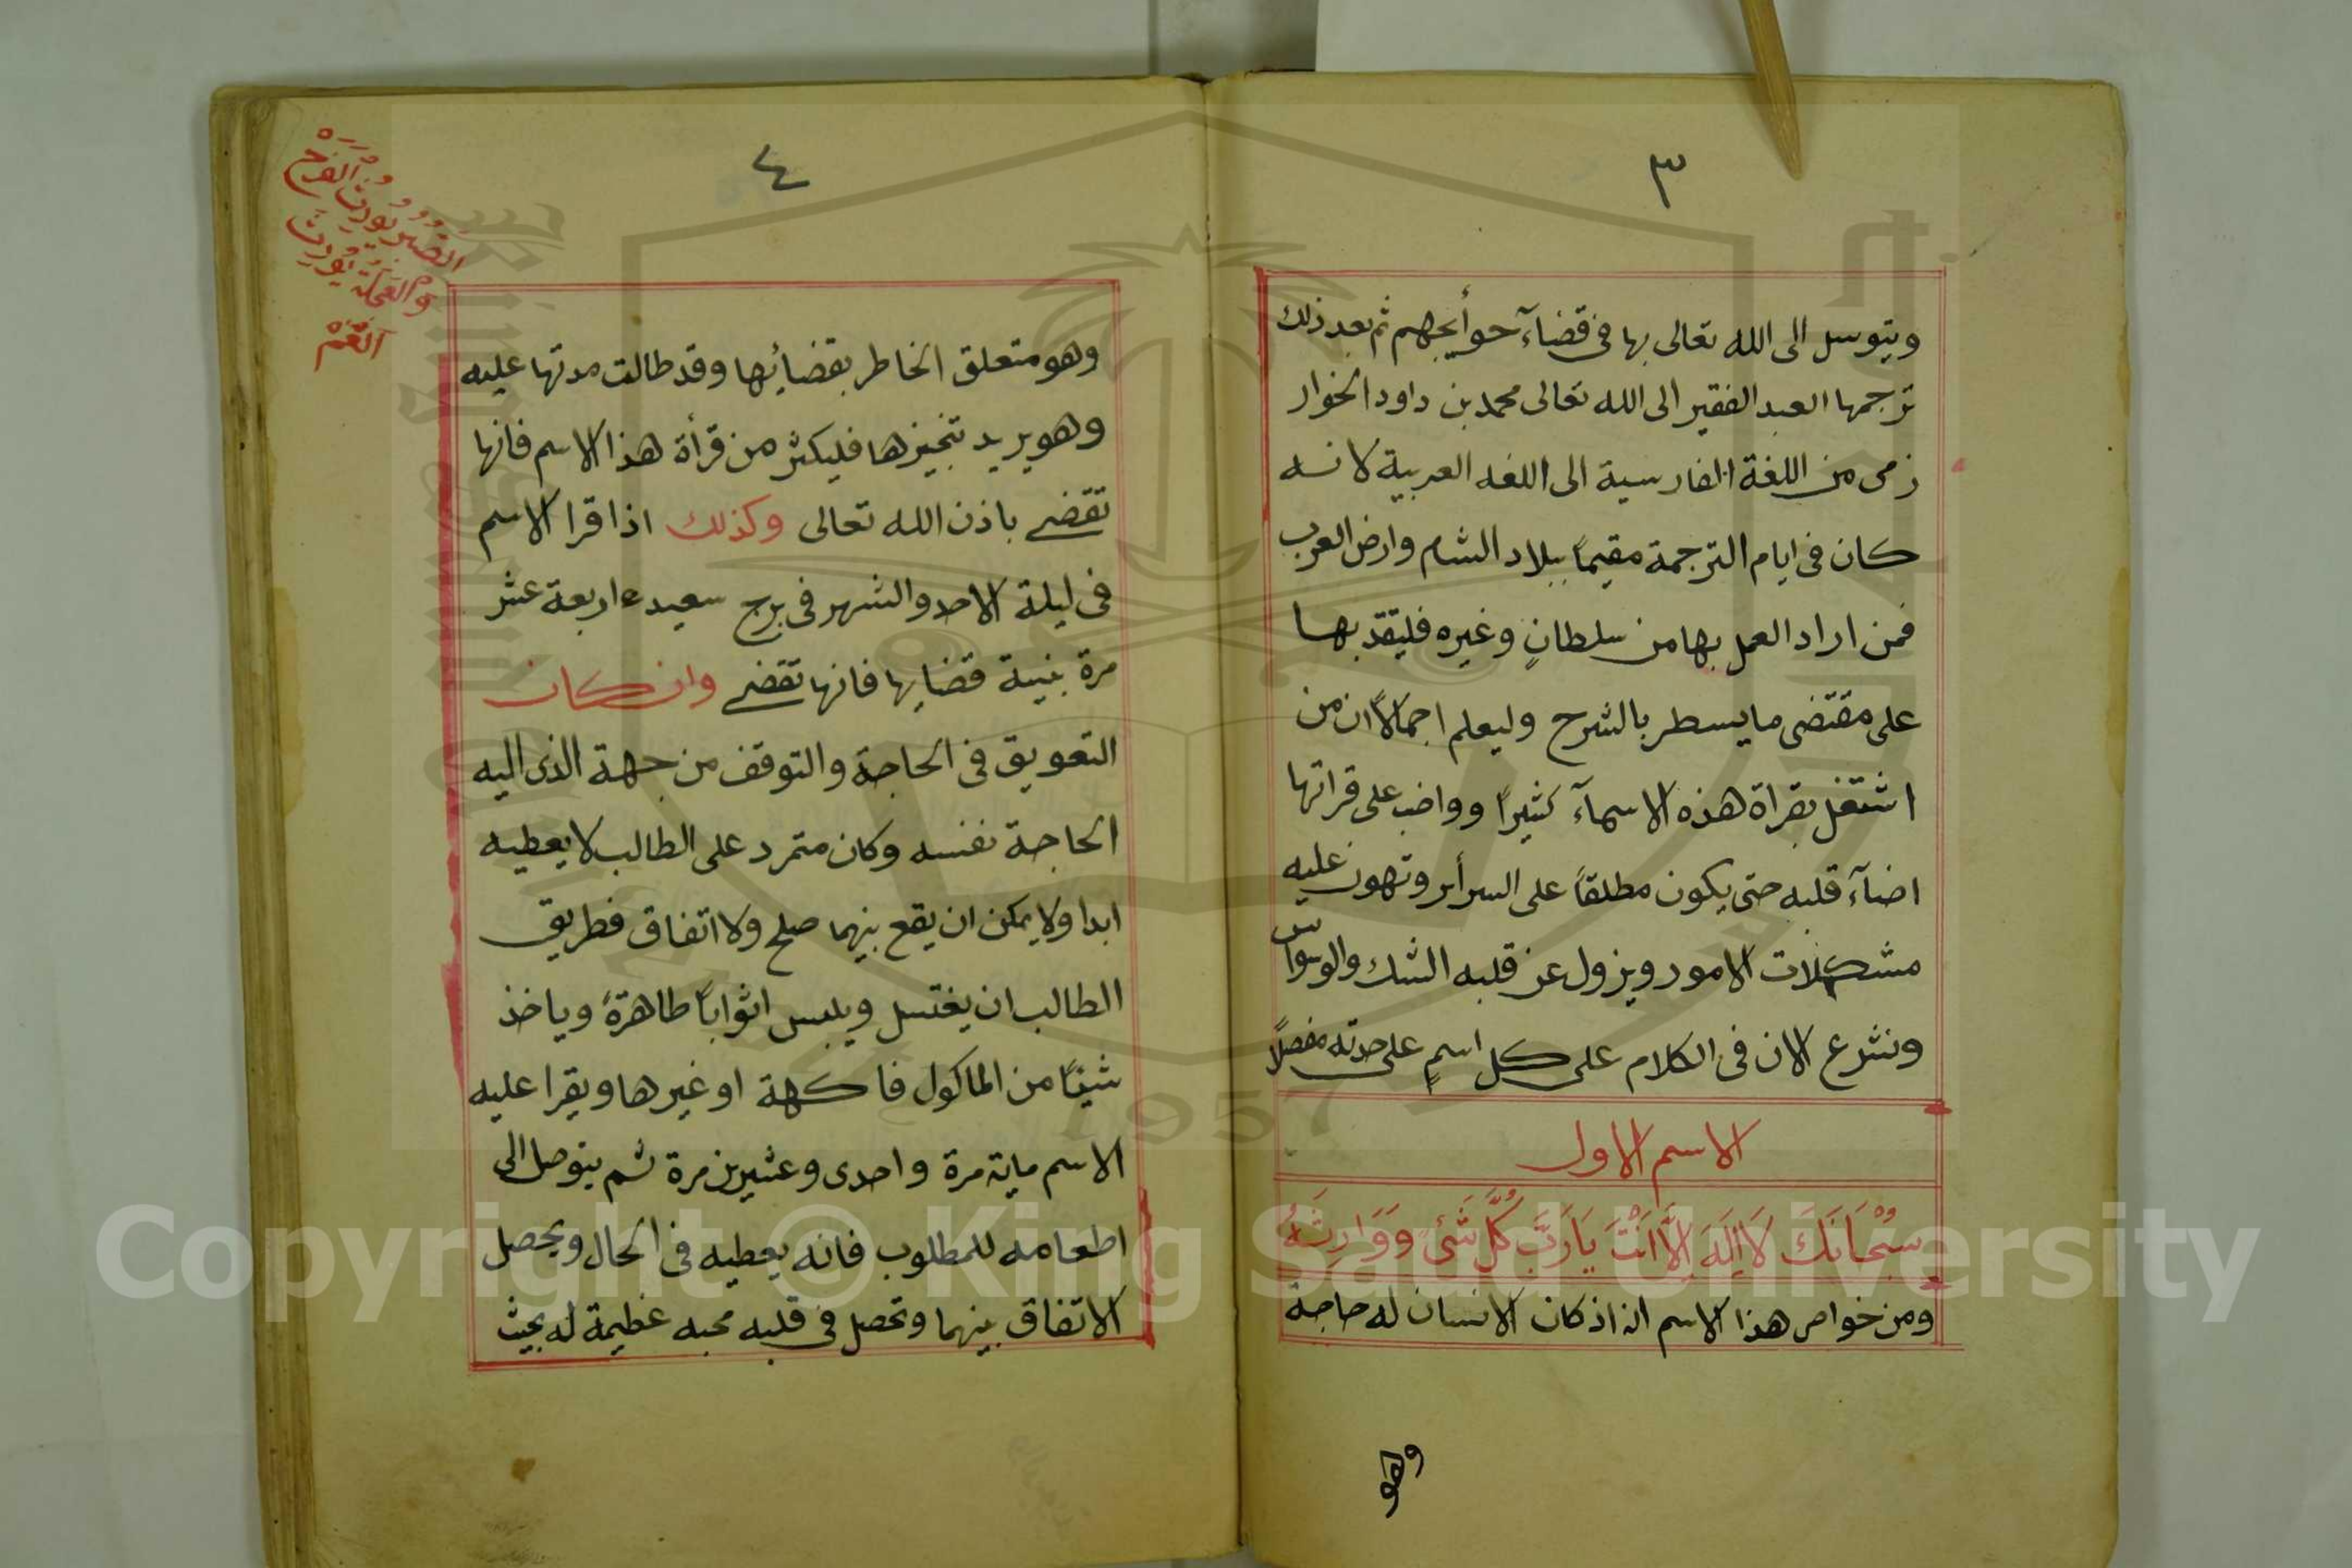 ٣
ويتوسل الى الله تعالى بها فى قضآء حوأيجهم ثم بعد ذلك
ترجمها العبد الفقير الى الله تعالى محمد بن داود الخوار
زمى من اللغة الفارسية الى اللغه العربية لانه
كان فى ايام الترجمة مقيماً ببلاد الشام وارض العرب
فمن اراد العمل بها من سلطانٍ وغيره فليقتد بها
على مقتضى ما يسطر بالشرح وليعلم اجمالاً ان من
اشتغل بقراة هذه الاسمآء كثيراً وواضب على قراتها
اضآء قلبه حتى يكون مطلقاً على السرأير وتهون عليه
مشكلات الامور ويزول عن قلبه الشك والوسواس
ونشرع الان فى الكلام على كل اسمٍ على حدته مفصلاً
الاسم الاول
سُبْحَانَكَ لَا اِلَهَ اِلَّا اَنْتَ يَا رَبَّ كُلِّ شَئٍ وَوَارِثَهُ
ومن خواص هذا الاسم انه اذ كان الانسان له حاجة
وهو
٤
وهو متعلق الخاطر بقضائها وقد طالت مدتها عليه
وهو يريد تنجيزها فليكثر من قرأة هذا الاسم فانها
تقضى باذن الله تعالى وكذلك اذا قرا الاسم
فى ليلة الاحد والشهر فى برج سعيد اربعة عشر
مرة بنية قضايها فانها تقضى وان كان
التعويق فى الحاجة والتوقف من جهة الذى اليه
الحاجة نفسه وكان متمرد على الطالب لا يعطيه
ابدا ولا يمكن ان يقع بينهما صلح ولا اتفاق فطريق
الطالب ان يغتسل ويلبس اثواباً طاهرةً وياخذ
شيئاً من الماكول فاكهة او غيرها ويقرا عليه
الاسم ماية مرة واحدى وعشرين مرة ثم يتوصل الى
اطعامه للمطلوب فانه يعطيه فى الحال ويحصل
الاتفاق بينهما وتحصل فى قلبه محبه عظيمة له بحيث
الصبر يورث الفرح
والعجلة يورث
الغم
1957
Copyright © King Saud University